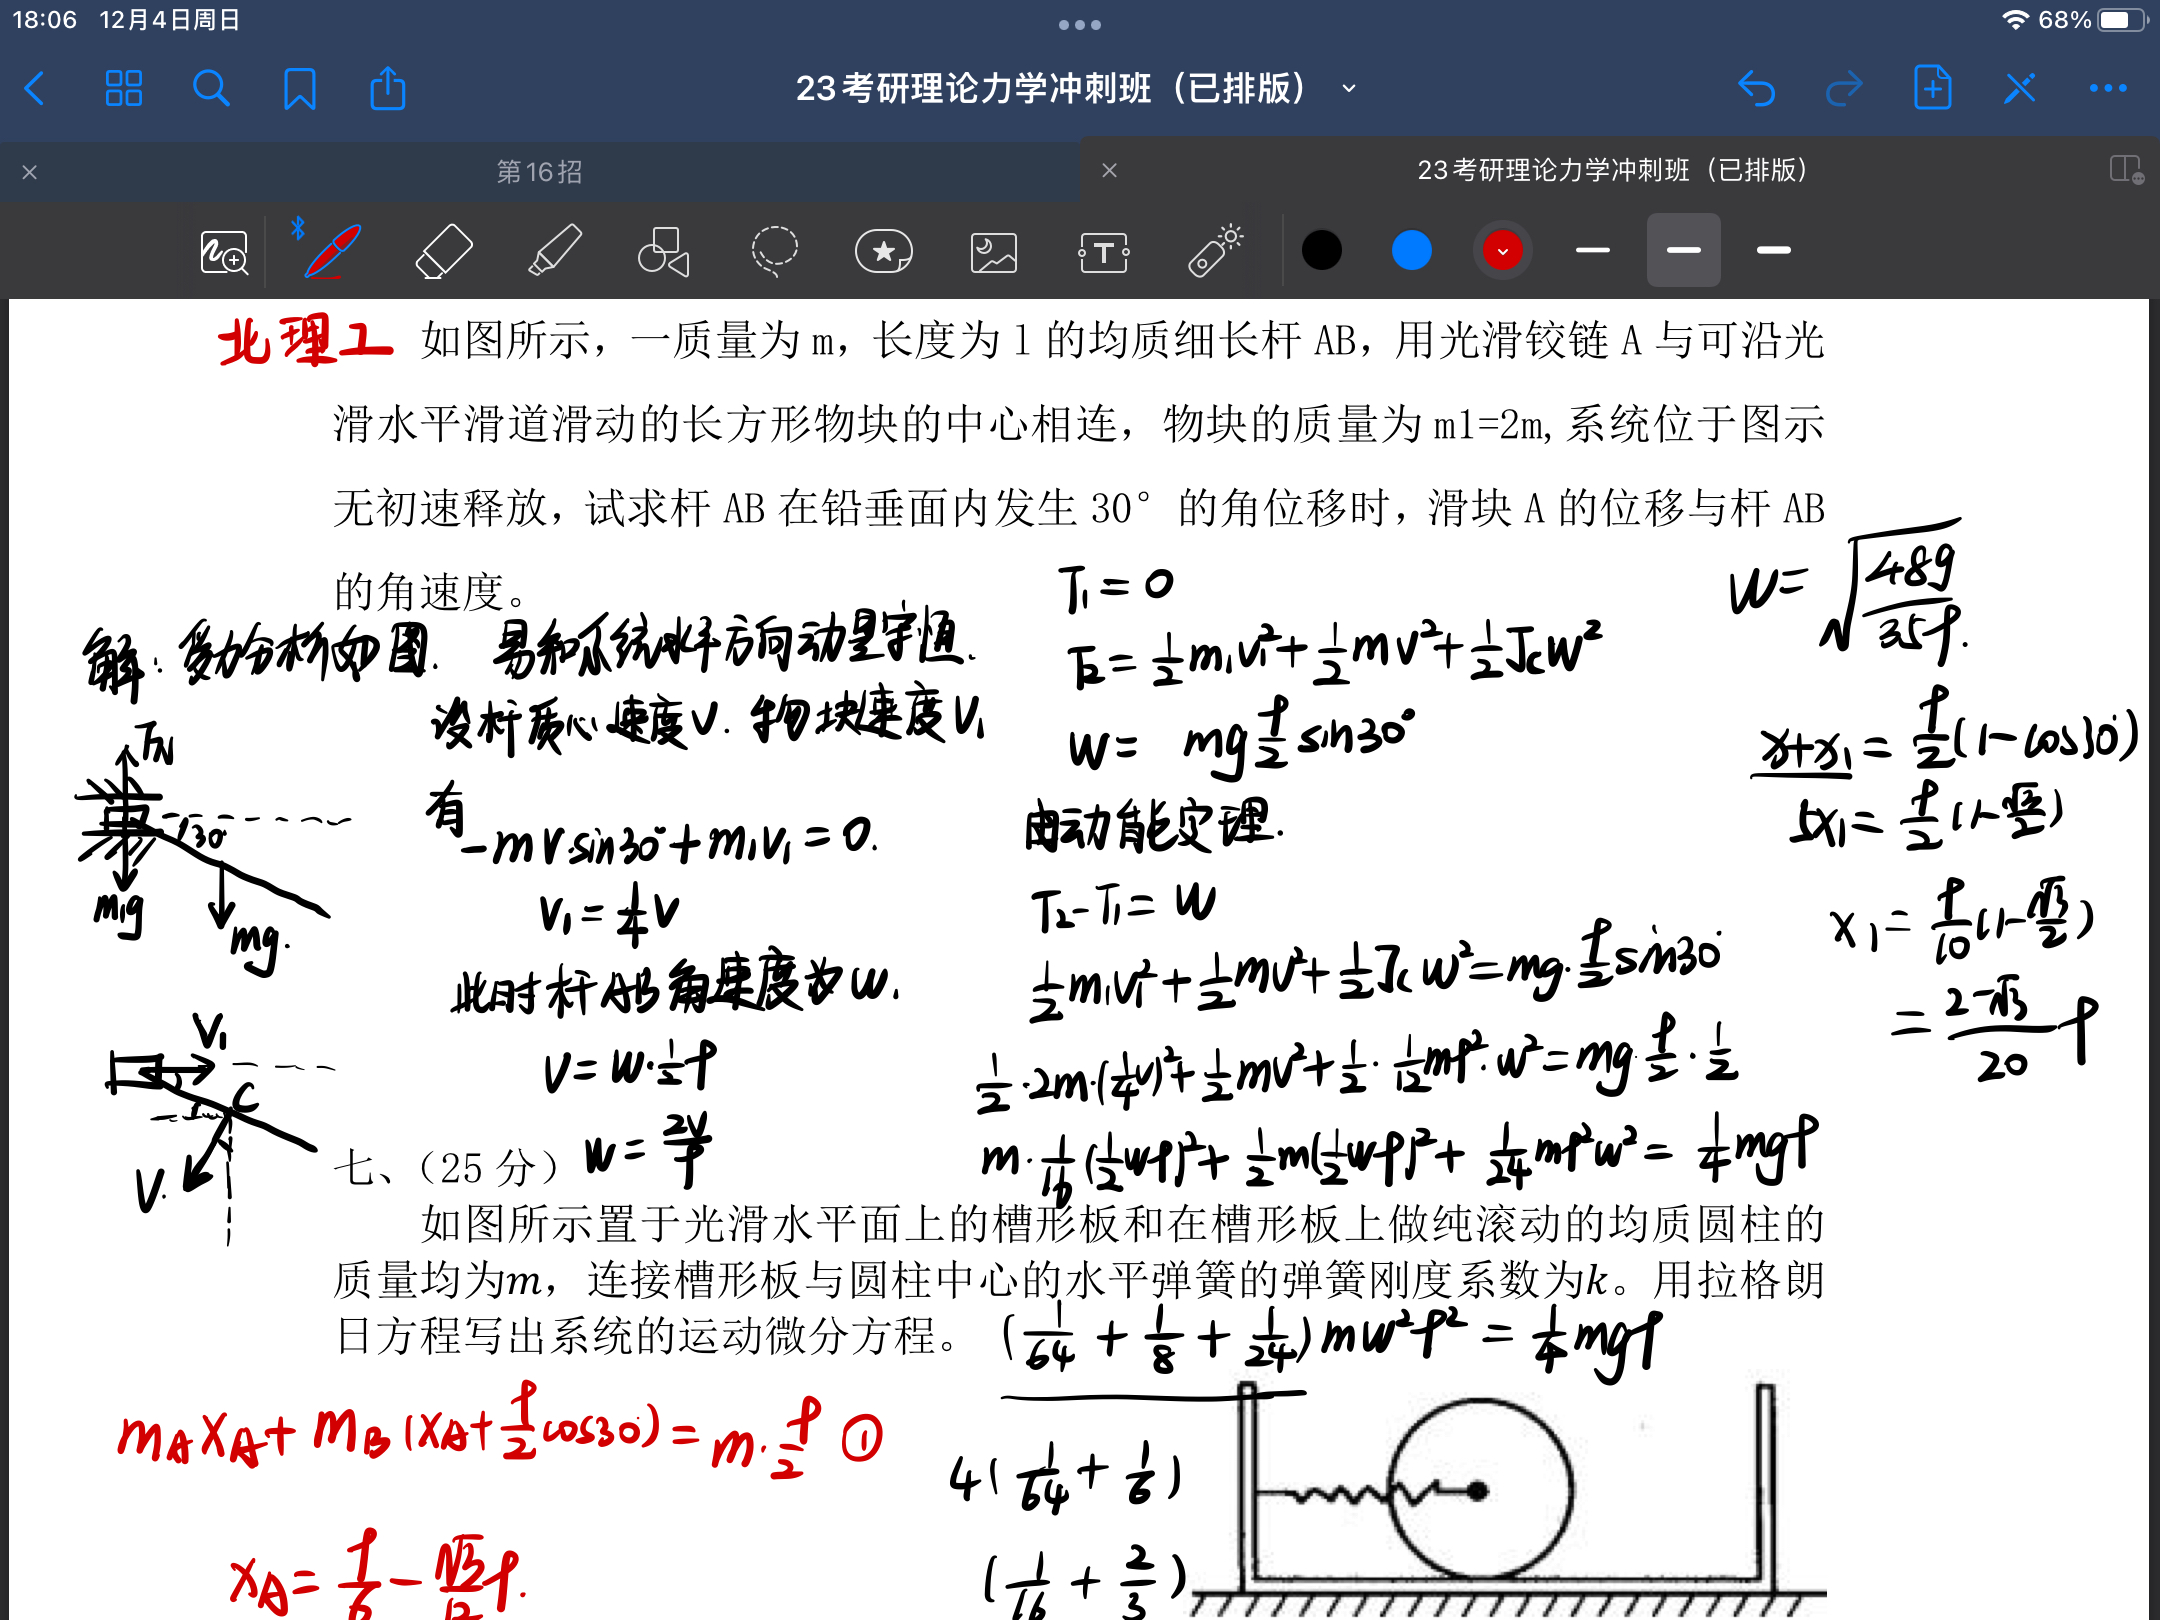 18:06 12月4日周日
68%
23考研理论力学冲刺班（已排版）
第16招
23考研理论力学冲刺班（已排版）
北理工 如图所示，一质量为 m，长度为 l 的均质细长杆 AB，用光滑铰链 A 与可沿光
滑水平滑道滑动的长方形物块的中心相连，物块的质量为 m1=2m,系统位于图示
无初速释放，试求杆 AB 在铅垂面内发生 30°的角位移时，滑块 A 的位移与杆 AB
的角速度。
解：受力分析如图. 易知系统水平方向动量守恒.
设杆质心速度V. 物块速度V₁
有
-mv·sin30°+m₁v₁=0.
V₁=¼V
此时杆AB角速度为w.
V=w·½l
w=2v/l
FN
30°
m₁g
mg.
V₁
C
V.
T₁=0
T₂=½m₁v₁²+½mv²+½Jcw²
W= mg l/2 sin30°
由动能定理.
T₂-T₁=W
½m₁v₁²+½mv²+½Jcw²=mg·l/2 sin30°
½·2m·(¼v)²+½mv²+½·1/12ml²·w²=mg·l/2·½
m·1/16(½wl)²+½m(½wl)²+1/24ml²w²=¼mgl
(1/64+1/8+1/24)mw²l²=¼mgl
4(1/64+1/6)
(1/16+2/3)
w=√(48g/35l).
x+x₁=l/2(1-cos30°)
5x₁=l/2(1-√3/2)
x₁=l/10(1-√3/2)
=(2-√3)/20 l
七、（25 分）
如图所示置于光滑水平面上的槽形板和在槽形板上做纯滚动的均质圆柱的
质量均为m，连接槽形板与圆柱中心的水平弹簧的弹簧刚度系数为k。用拉格朗
日方程写出系统的运动微分方程。
mAxA+mB(xA+l/2cos30°)=m·l/2 ①
xA=l/6-√3/12 l.